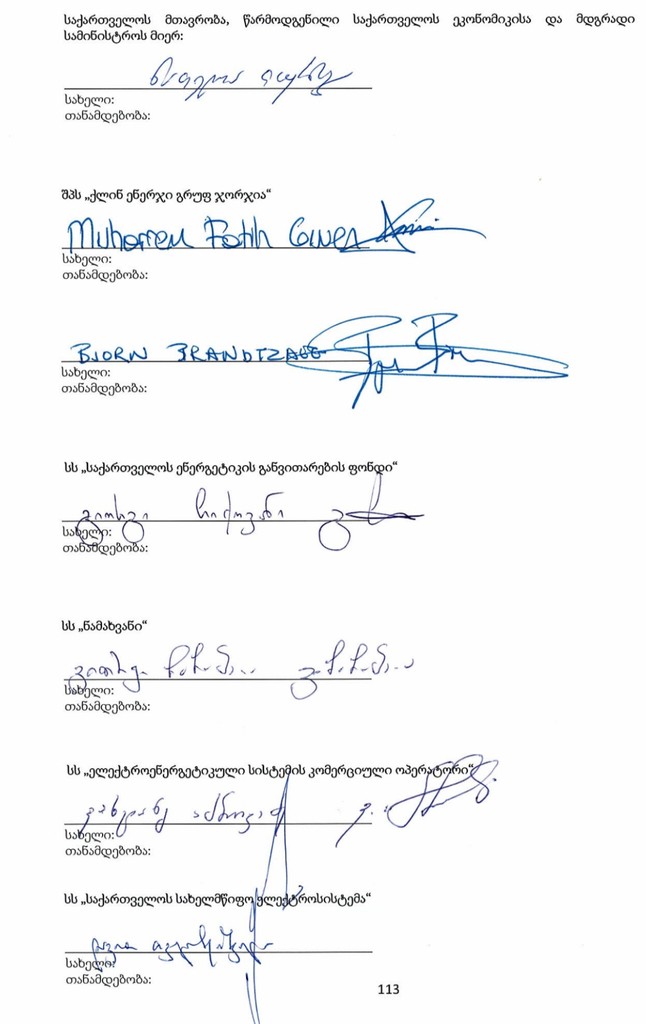 საქართველოს მთავრობა, წარმოდგენილი საქართველოს ეკონომიკისა და მდგრადი
სამინისტროს მიერ:
სახელი:
თანამდებობა:
შპს „ქლინ ენერჯი გრუფ ჯორჯია“
Muharrem Fatih
სახელი:
თანამდებობა:
BJORN BRANDTZAEG
სახელი:
თანამდებობა:
სს „საქართველოს ენერგეტიკის განვითარების ფონდი“
გიორგი ჩიქოვანი
სახელი:
თანამდებობა:
სს „ნამახვანი“
გიორგი
სახელი:
თანამდებობა:
სს „ელექტროენერგეტიკული სისტემის კომერციული ოპერატორი“
ვახტანგ
სახელი:
თანამდებობა:
სს „საქართველოს სახელმწიფო ელექტროსისტემა“
სახელი:
თანამდებობა:
113